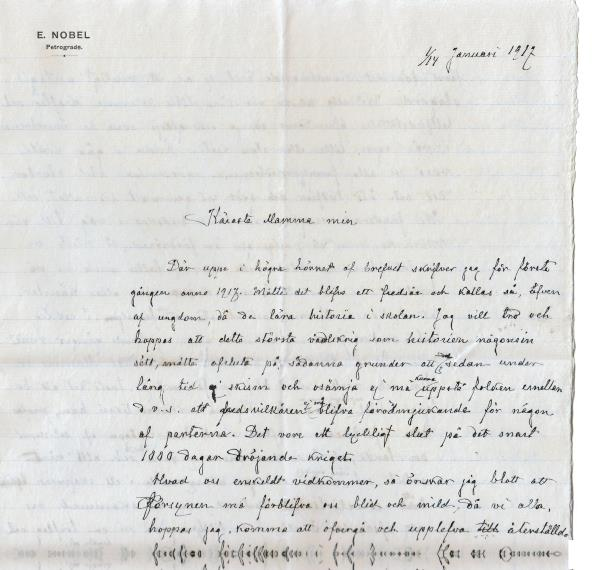 E. NOBEL
Petrograde.
1/14 Januari 1917
Käraste Mamma min
Där uppe i högra hörnet af brefvet skrifver jag för första
gången anno 1917. Måtte det blifva ett fredsår och kallas så, äfven
af ungdom, då de lära historia i skolan. Jag vill tro och
hoppas att detta största världskrig som historien någonsin
sett, måtte afsluta på sådana grunder att sedan under
lång tid skism och osämja ej må kunna uppstå folken emellan
d.v.s. att fredsvilkåren ej må blifva förödmjukande för någon
af parterna. Det vore ett lyckligt slut på det snart
1000 dagar dröjande kriget.
Hvad oss enskeldt vidkommer, så önskar jag blott att
Försynen må förblifva oss blid och mild, då vi alla,
hoppas jag, komma att öfvergå och upplefva återställda